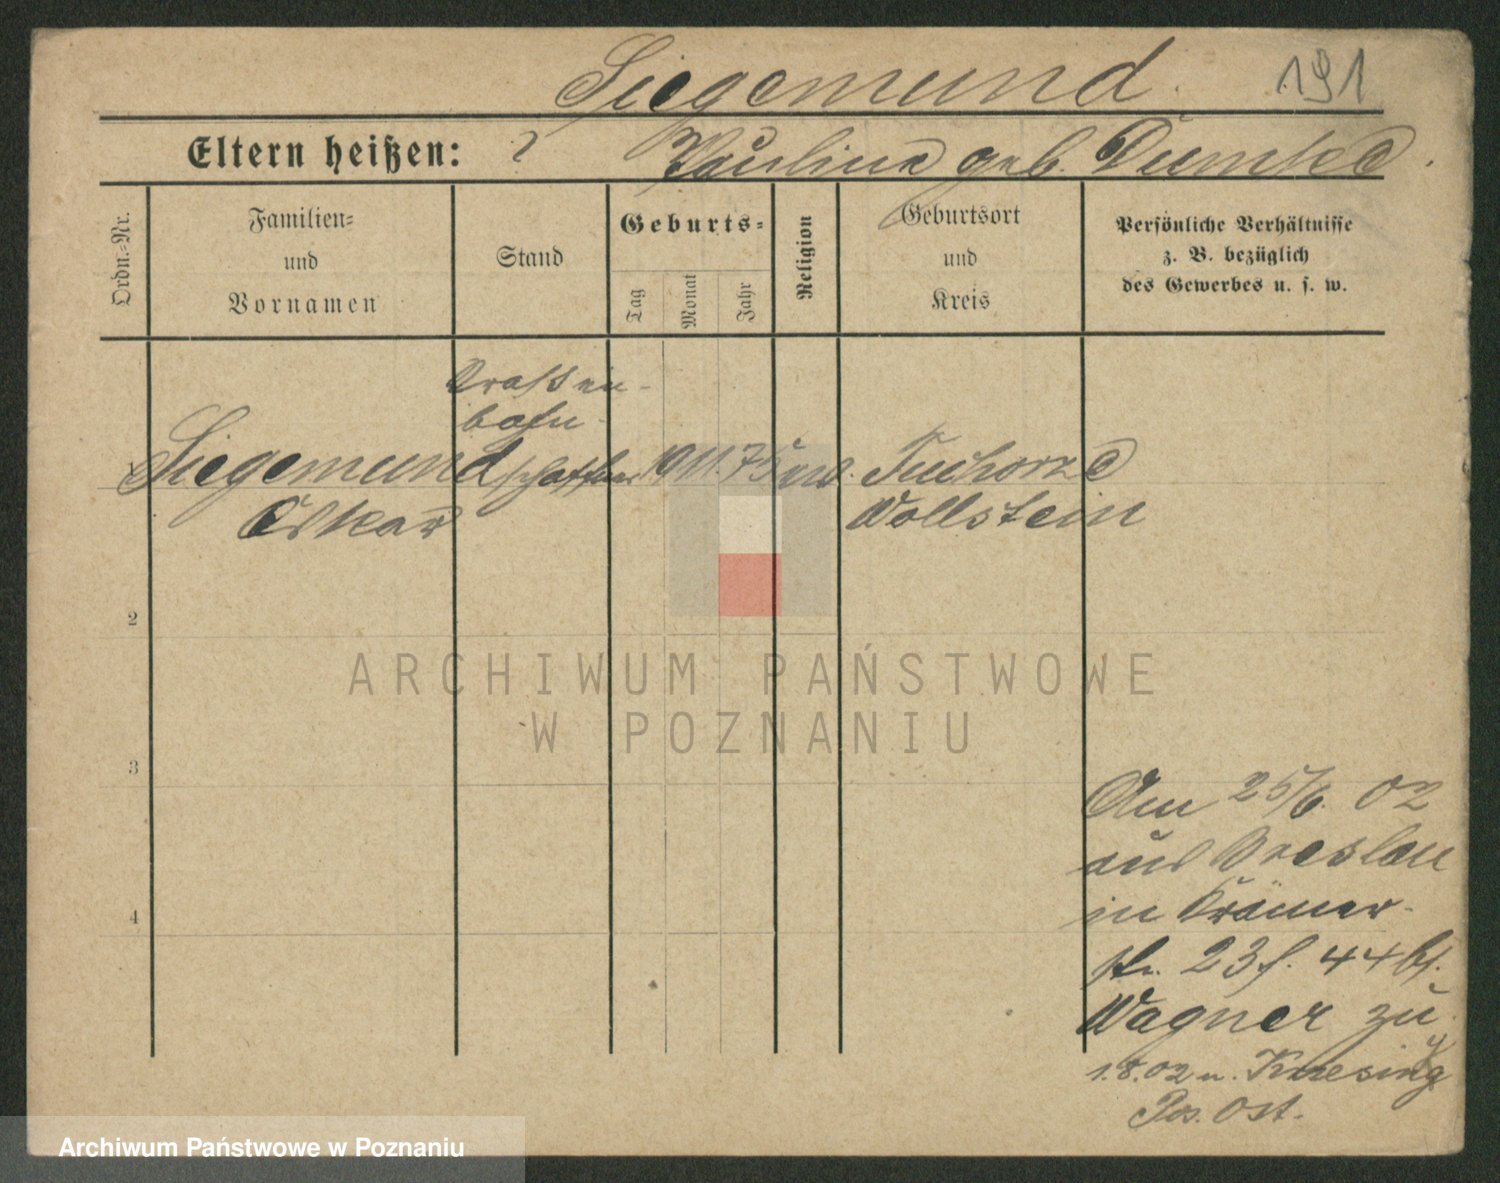 Siegemund. 191
Eltern heißen: ? Pauline geb. Dumke.
Ordn.-Nr.
Familien-
und
Vornamen
Stand
Geburts-
Tag
Monat
Jahr
Religion
Geburtsort
und
Kreis
Persönliche Verhältnisse
z. B. bezüglich
des Gewerbes u. s. w.
Straßen-
bahn-
1 Siegemund schaffner 19 11. 75 ev. Tuchorze
Oskar Wollstein
2
ARCHIWUM PAŃSTWOWE
W POZNANIU
3
Am 25/6. 02
aus Breslau
4
in Krämer-
str. 23 f. 44 bf.
Wagner zu
1.8.02 n.
Pos. Ost.
Archiwum Państwowe w Poznaniu